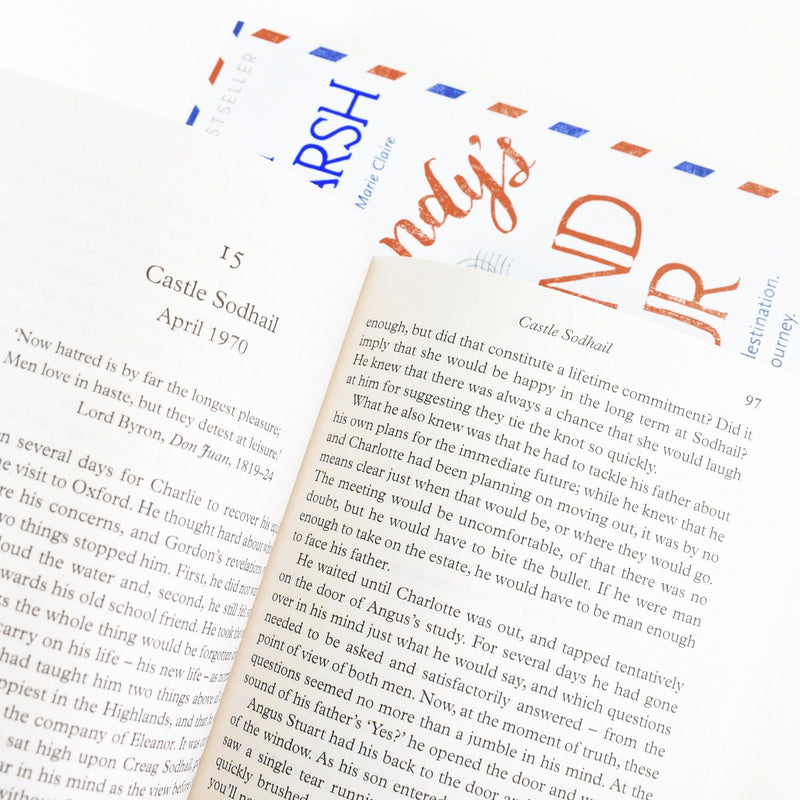 STSELLER
ARSH
Marie Claire
ndy's
ND
UR
destination.
ourney.
15
Castle Sodhail
April 1970
'Now hatred is by far the longest pleasure;
Men love in haste, but they detest at leisure.'
Lord Byron, Don Juan, 1819–24
n several days for Charlie to recover his
e visit to Oxford. He thought hard about
re his concerns, and Gordon's revelations
wo things stopped him. First, he did not
loud the water and, second, he still
wards his old school friend. He took
s the whole thing would be forgotten
carry on his life – his new life – as
had taught him two things above
ppiest in the Highlands, and that
the company of Eleanor. It was
sat high upon Creag Sodhail,
ar in his mind as the view before
Castle Sodhail
97
enough, but did that constitute a lifetime commitment? Did it
imply that she would be happy in the long term at Sodhail?
He knew that there was always a chance that she would laugh
at him for suggesting they tie the knot so quickly.
What he also knew was that he had to tackle his father about
his own plans for the immediate future; while he knew that he
and Charlotte had been planning on moving out, it was by no
means clear just when that would be, or where they would go.
The meeting would be uncomfortable, of that there was no
doubt, but he would have to bite the bullet. If he were man
enough to take on the estate, he would have to be man enough
to face his father.
He waited until Charlotte was out, and tapped tentatively
on the door of Angus's study. For several days he had gone
over in his mind just what he would say, and which questions
needed to be asked and satisfactorily answered – from the
point of view of both men. Now, at the moment of truth, these
questions seemed no more than a jumble in his mind. At the
sound of his father's 'Yes?' he opened the door and
Angus Stuart had his back to the door and
of the window. As his son entered
saw a single tear running
quickly brushed
you'll ne